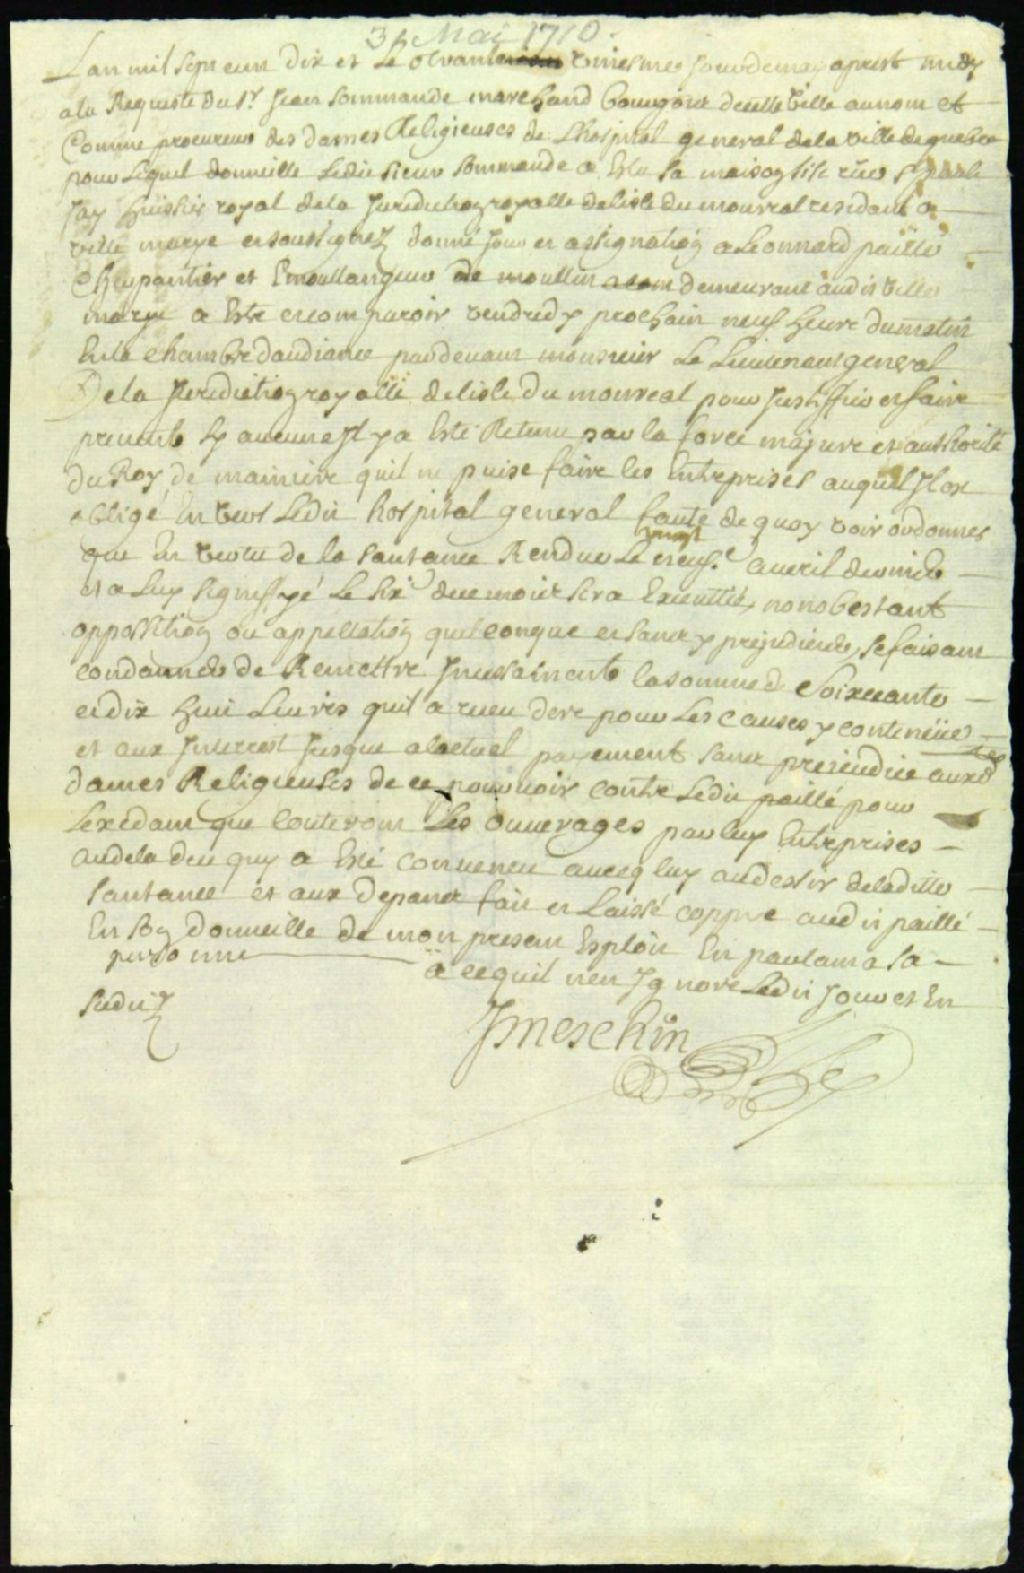 31 Mai 1710.
Lan mil sept cent dix et Le trante uniesme Jour de may aprest midy
a la Requeste du Sr Jean Sommande marchand bourgois de cette ville au nom et
Comme procureur des dames Religieuses de Lhospital general de la ville de quebec
pour Lequel domicille Ledit sieur Sommande a Eslu sa maison size rue St paule
Jay huissier royal de la Juridiction royalle de lisle du monreal residant a
ville marye et soussignez donné Jour et assignation a Leonnard paillé
Charpantier et moullangeur de moullin demeurant audit ville
marye a Estre et comparoir vendredy prochain neuf heure du matin
En la chambre daudiance pardevant monsieur Le Lieutenant general
De la Juridiction royalle de lisle du monreal pour Justiffier et faire
preuve sy aucune Il y a Esté Retenu par la force majure et authorité
du Roy de mainiere quil ne puise faire les Entreprises auquel Il ox
obligé En vers Ledit hospital general faute de quoy voir ordonner
que En vertu de la santance Rendue Le neuf.e avril dernier
vingt
et a Luy signiffyé Le six du mois sera Exécuttée nonobestant
oppossition ou appellation quelconque et sans y prejudicier, se faisant
condamner de Remettre Insessament la somme de Soixante
et dix huit Livres quil a receu pour Les causes y contenües
et aux Interrest Jusque alactuel payement sans prejudice auxd
dames Religieuses de ce pourvoir contre Ledit paillé pour
Lexedant que couteront Les ouvrages par luy Entreprises
audela de ce quy a Esté convenu avecq luy au desir de ladite
santance et aux depans fait et Laissé coppye audit paillé
En son domicille de mon present Exploit En parlant a sa
personne a ce quil nen Ignore Ledit Jour et En
susdit
Jmeschin